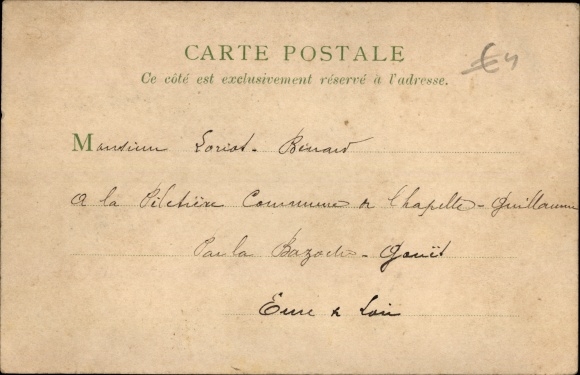 CARTE POSTALE
Ce côté est exclusivement réservé à l'adresse.
€4
Monsieur Loriot-Benard
A la Piletière Commune de Chapelle-Guillaume
Par la Bazoche-Gouët
Eure & Loir